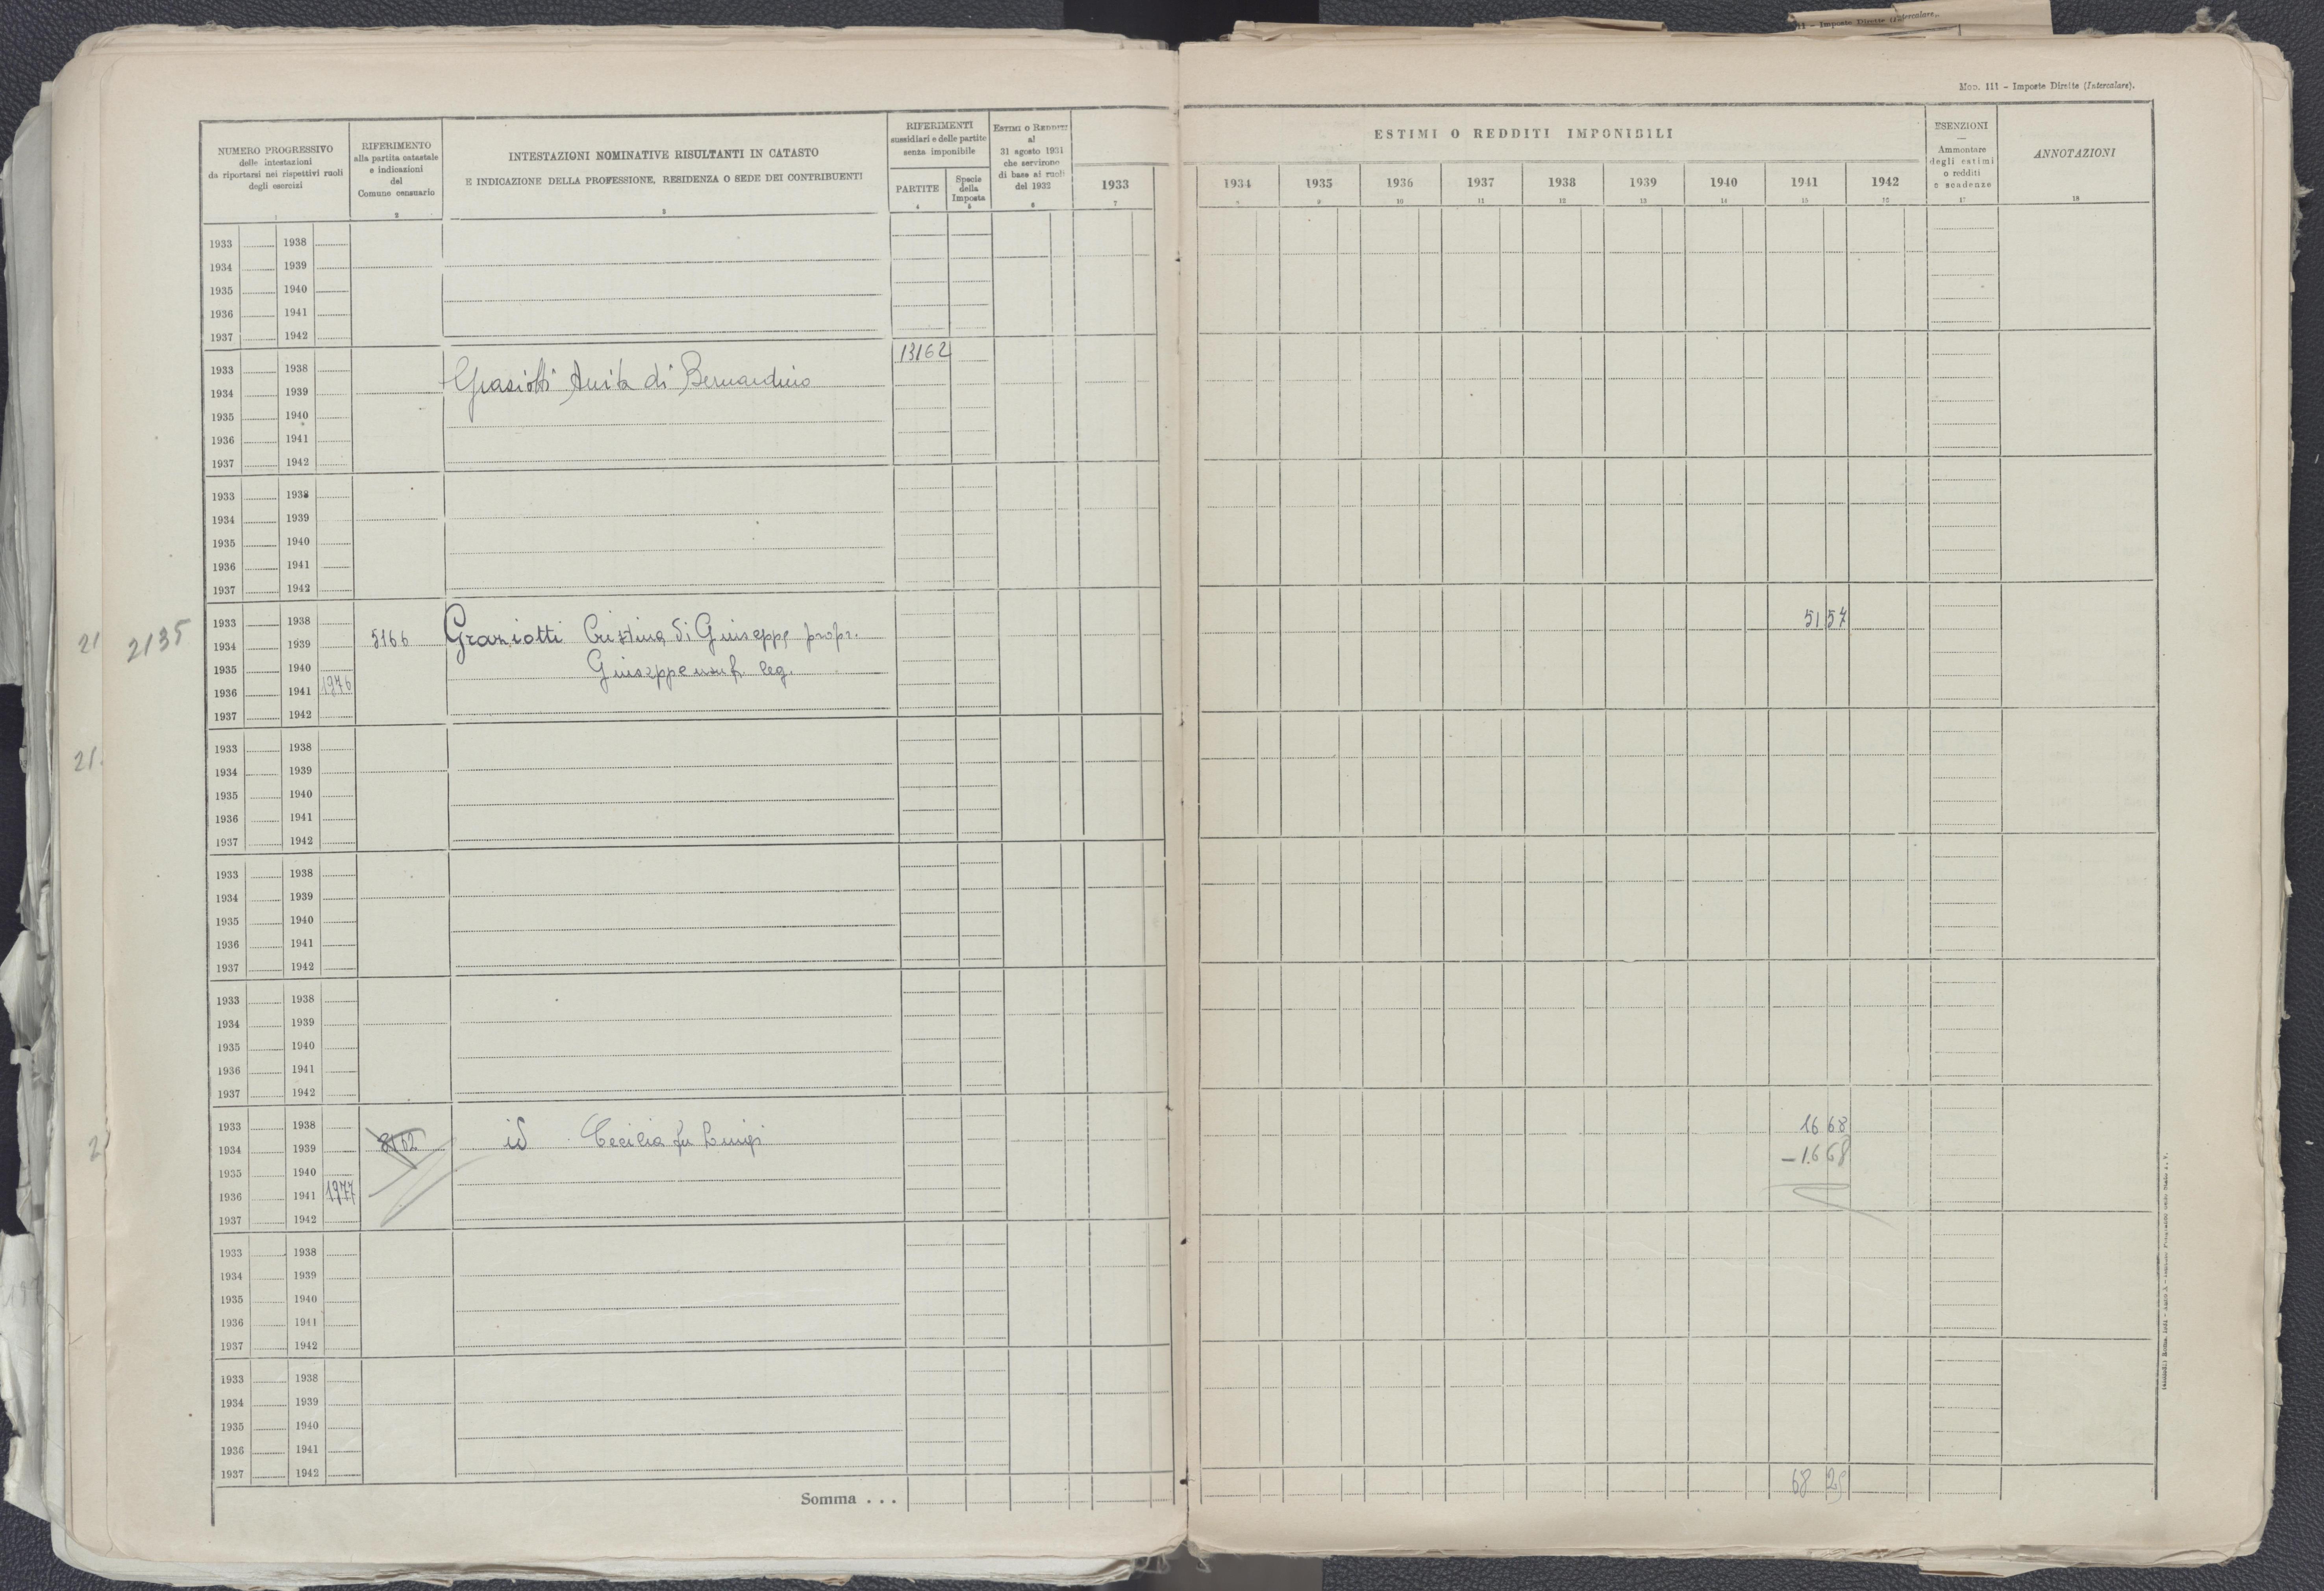 III - Imposte Dirette (Intercalare
MOD. 111 - Imposte Dirette (Intercalare).
NUMERO PROGRESSIVO
delle intestazioni
da riportarsi nei rispettivi ruoli
degli esercizi
1
RIFERIMENTO
alla partita catastale
e indicazioni
del
Comune censuario
2
INTESTAZIONI NOMINATIVE RISULTANTI IN CATASTO
E INDICAZIONE DELLA PROFESSIONE, RESIDENZA O SEDE DEI CONTRIBUENTI
3
RIFERIMENTI
sussidiari e delle partite
senza imponibile
PARTITE
4
Specie
della
Imposta
5
ESTIMI O REDDITI
al
31 agosto 1931
che servirono
di base ai ruoli
del 1932
6
1933
7
ESTIMI O REDDITI IMPONIBILI
1934 1935 1936 1937 1938 1939 1940 1941 1942
8 9 10 11 12 13 14 15 16
ESENZIONI
—
Ammontare
degli estimi
o redditi
e scadenze
17
ANNOTAZIONI
18
1933 1938
1934 1939
1935 1940
1936 1941
1937 1942
13162
1933 1938
Grasiotti Anita di Bernardino
1934 1939
1935 1940
1936 1941
1937 1942
1933 1938
1934 1939
1935 1940
1936 1941
1937 1942
1933 1938 51 57
21 2135 1934 1939 5166 Graziotti Cristina di Giuseppe propr.
1935 1940 Giuseppe usuf. leg.
1936 1941 1976
1937 1942
1933 1938
21. 1934 1939
1935 1940
1936 1941
1937 1942
1933 1938
1934 1939
1935 1940
1936 1941
1937 1942
1933 1938
1934 1939
1935 1940
1936 1941
1937 1942
1933 1938 16 68
2 1934 1939 8162 id Cecilia fu Luigi
- 16 68
1935 1940
1936 1941 1977
1937 1942
1933 1938
1934 1939
1935 1940
1936 1941
1937 1942
1933 1938
1934 1939
1935 1940
1936 1941
1937 1942
Somma . . . 68 25